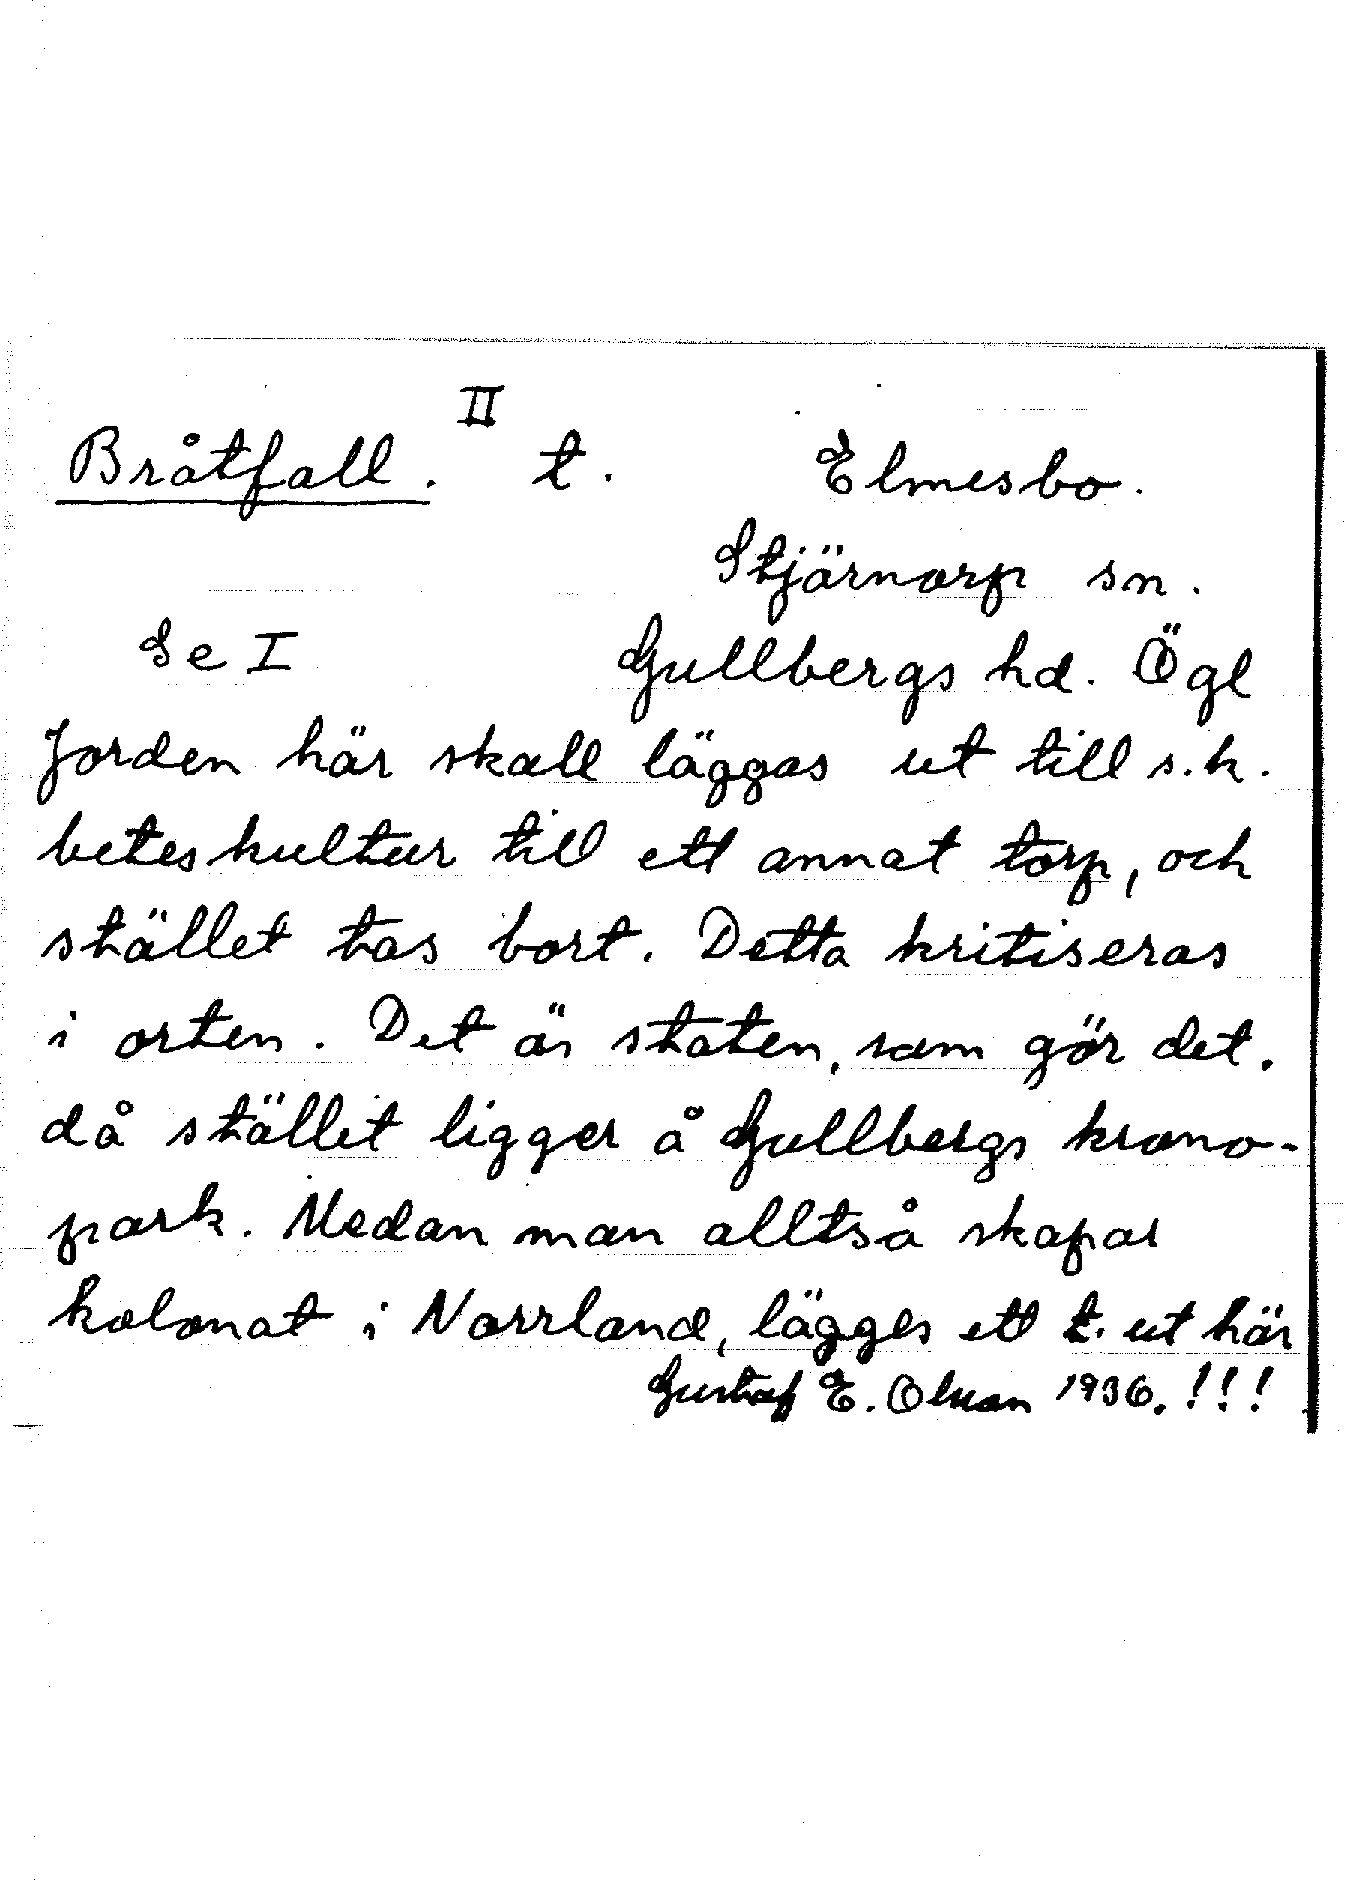 II
Bråtfall. t. Elmesbo.
Stjärnorp sn.
Se I Gullbergs hd. Ögl
Jorden här skall läggas ut till s.k.
beteskultur till ett annat torp, och
stället tas bort. Detta kritiseras
i orten. Det är staten, som gör det.
då stället ligger å Gullbergs krono-
park. Medan man alltså skapar
kolonat i Norrland, lägges ett t. ut här
Gustaf E. Olsson 1936. !!!